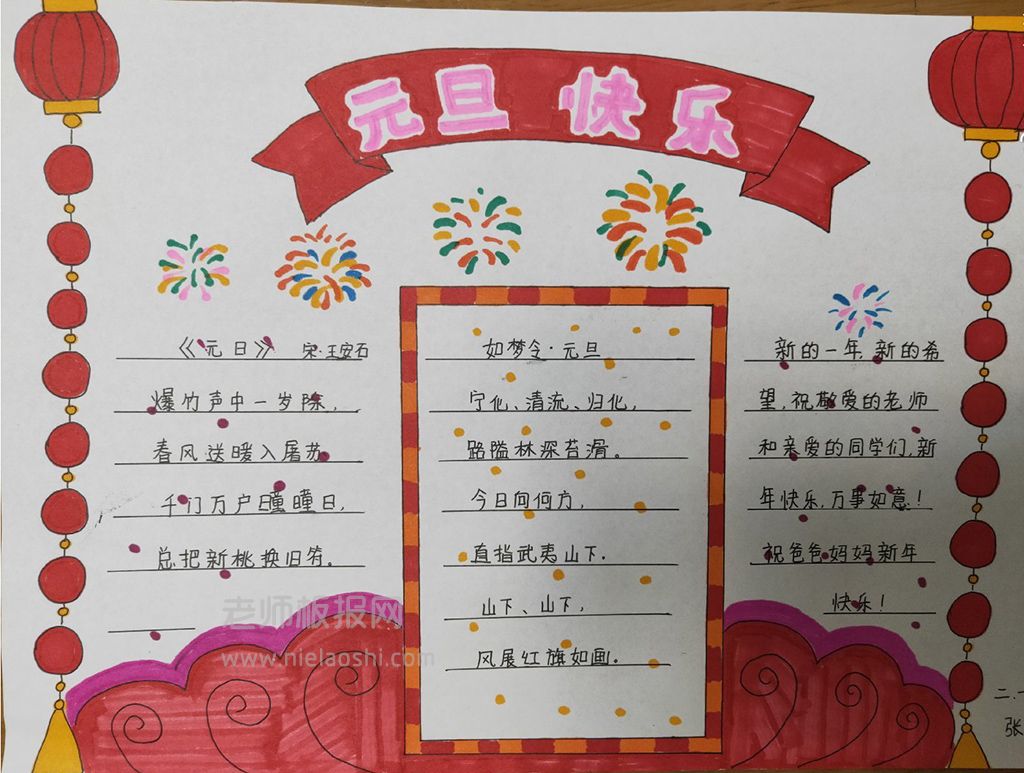 元旦 快乐
《元日》 宋·王安石
爆竹声中一岁除,
春风送暖入屠苏
千门万户曈曈日,
总把新桃换旧符。
如梦令·元旦
宁化、清流、归化,
路隘林深苔滑。
今日向何方,
直指武夷山下.
山下、山下,
风展红旗如画。
新的一年,新的希
望,祝敬爱的老师
和亲爱的同学们,新
年快乐,万事如意!
祝爸爸妈妈新年
快乐!
二.一
张
老师板报网
www.nielaoshi.com